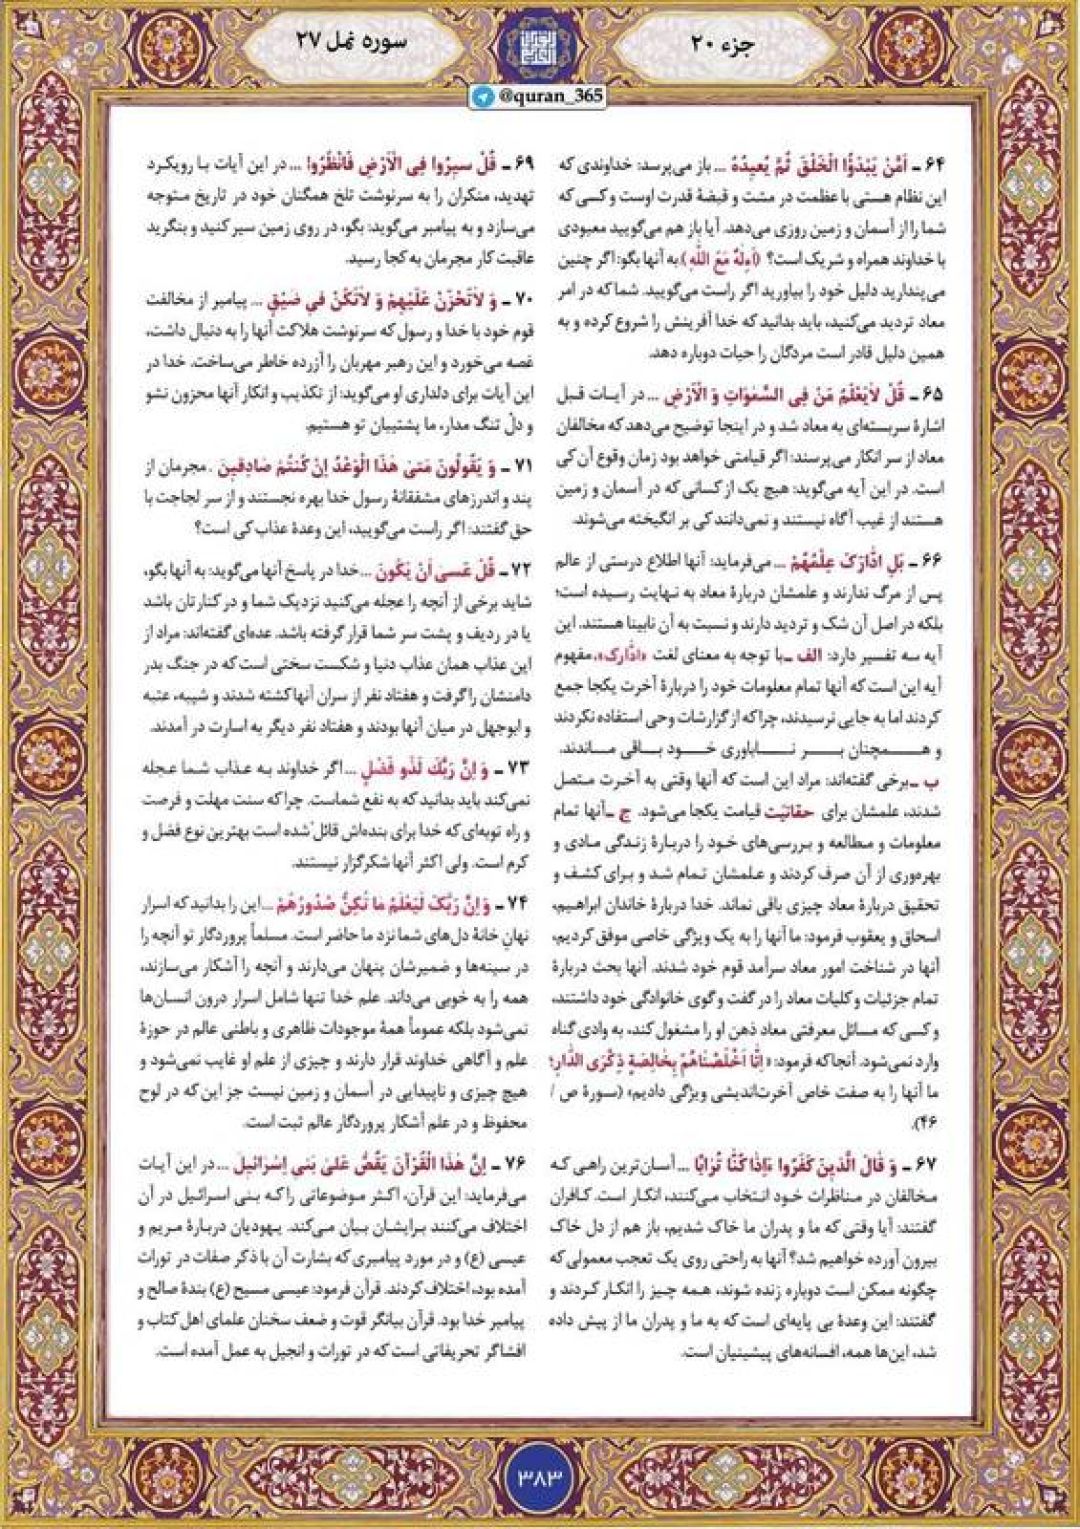 جزء ۲۰
سوره نمل ۲۷
@quran_365
۶۴ ـ اَمَّنْ يَبْدَؤُا الْخَلْقَ ثُمَّ يُعيدُهُ ... باز می‌پرسد: خداوندی که
این نظام هستی با عظمت در مشت و قبضهٔ قدرت اوست و کسی که
شما را از آسمان و زمین روزی می‌دهد. آیا باز هم می‌گویید معبودی
با خداوند همراه و شریک است؟ (أَءِلٰهٌ مَعَ اللّٰهِ). به آنها بگو: اگر چنین
می‌پندارید دلیل خود را بیاورید اگر راست می‌گویید. شما که در امر
معاد تردید می‌کنید، باید بدانید که خدا آفرینش را شروع کرده و به
همین دلیل قادر است مردگان را حیات دوباره دهد.
۶۵ ـ قُلْ لٰايَعْلَمُ مَنْ فِى السَّمٰوٰاتِ وَ الْاَرْضِ ... در آیات قبل
اشارهٔ سربسته‌ای به معاد شد و در اینجا توضیح می‌دهد که مخالفان
معاد از سر انکار می‌پرسند: اگر قیامتی خواهد بود زمان وقوع آن کی
است. در این آیه می‌گوید: هیچ یک از کسانی که در آسمان و زمین
هستند از غیب آگاه نیستند و نمی‌دانند کی بر انگیخته می‌شوند.
۶۶ ـ بَلِ ادّٰارَكَ عِلْمُهُمْ ... می‌فرماید: آنها اطلاع درستی از عالم
پس از مرگ ندارند و علمشان دربارهٔ معاد به نهایت رسیده است؛
بلکه در اصل آن شک و تردید دارند و نسبت به آن نابینا هستند. این
آیه سه تفسیر دارد: الف ـ با توجه به معنای لغت «ادّارک»، مفهوم
آیه این است که آنها تمام معلومات خود را دربارهٔ آخرت یکجا جمع
کردند اما به جایی نرسیدند، چرا که از گزارشات وحی استفاده نکردند
و همچنان بر ناباوری خود باقی ماندند.
ب ـ برخی گفته‌اند: مراد این است که آنها وقتی به آخرت متصل
شدند، علمشان برای حقانیّت قیامت یکجا می‌شود. ج ـ آنها تمام
معلومات و مطالعه و بررسی‌های خود را دربارهٔ زندگی مادی و
بهره‌وری از آن صرف کردند و علمشان تمام شد و برای کشف و
تحقیق دربارهٔ معاد چیزی باقی نماند. خدا دربارهٔ خاندان ابراهیم،
اسحاق و یعقوب فرمود: ما آنها را به یک ویژگی خاصی موفق کردیم،
آنها در شناخت امور معاد سرآمد قوم خود شدند. آنها بحث دربارهٔ
تمام جزئیات و کلیات معاد را در گفت و گوی خانوادگی خود داشتند،
و کسی که مسائل معرفتی معاد ذهن او را مشغول کند، به وادی گناه
وارد نمی‌شود. آنجا که فرمود: «اِنّٰا اَخْلَصْنٰاهُمْ بِخٰالِصَةٍ ذِكْرَى الدّٰارِ؛
ما آنها را به صفت خاص آخرت‌اندیشی ویژگی دادیم» (سورهٔ ص /
۴۶).
۶۷ ـ وَ قٰالَ الَّذينَ كَفَرُوا ءَاِذٰا كُنّٰا تُرٰابًا ... آسان‌ترین راهی که
مخالفان در مناظرات خود انتخاب می‌کنند، انکار است. کافران
گفتند: آیا وقتی که ما و پدران ما خاک شدیم، باز هم از دل خاک
بیرون آورده خواهیم شد؟ آنها به راحتی روی یک تعجب معمولی که
چگونه ممکن است دوباره زنده شوند، همه چیز را انکار کردند و
گفتند: این وعدهٔ بی پایه‌ای است که به ما و پدران ما از پیش داده
شد، این‌ها همه، افسانه‌های پیشینیان است.
۶۹ ـ قُلْ سيرُوا فِى الْاَرْضِ فَانْظُرُوا ... در این آیات با رویکرد
تهدید، منکران را به سرنوشت تلخ همگنان خود در تاریخ متوجه
می‌سازد و به پیامبر می‌گوید: بگو، در روی زمین سیر کنید و بنگرید
عاقبت کار مجرمان به کجا رسید.
۷۰ ـ وَ لٰاتَحْزَنْ عَلَيْهِمْ وَ لٰاتَكُنْ في ضَيْقٍ ... پیامبر از مخالفت
قوم خود با خدا و رسول که سرنوشت هلاکت آنها را به دنبال داشت،
غصه می‌خورد و این رهبر مهربان را آزرده خاطر می‌ساخت. خدا در
این آیات برای دلداری او می‌گوید: از تکذیب و انکار آنها محزون نشو
و دلْ تنگ مدار، ما پشتیبان تو هستیم.
۷۱ ـ وَ يَقُولُونَ مَتىٰ هٰذَا الْوَعْدُ اِنْ كُنْتُمْ صٰادِقينَ . مجرمان از
پند و اندرزهای مشفقانهٔ رسول خدا بهره نجستند و از سر لجاجت با
حق گفتند: اگر راست می‌گویید، این وعدهٔ عذاب کی است؟
۷۲ ـ قُلْ عَسىٰ اَنْ يَكُونَ ... خدا در پاسخ آنها می‌گوید: به آنها بگو،
شاید برخی از آنچه را عجله می‌کنید نزدیک شما و در کنارتان باشد
یا در ردیف و پشت سر شما قرار گرفته باشد. عده‌ای گفته‌اند: مراد از
این عذاب همان عذاب دنیا و شکست سختی است که در جنگ بدر
دامنشان را گرفت و هفتاد نفر از سران آنها کشته شدند و شیبه، عتبه
و ابوجهل در میان آنها بودند و هفتاد نفر دیگر به اسارت در آمدند.
۷۳ ـ وَ اِنَّ رَبَّكَ لَذُو فَضْلٍ ... اگر خداوند به عذاب شما عجله
نمی‌کند باید بدانید که به نفع شماست. چرا که سنت مهلت و فرصت
و راه توبه‌ای که خدا برای بنده‌اش قائل شده است بهترین نوع فضل و
کرم است. ولی اکثر آنها شکرگزار نیستند.
۷۴ ـ وَ اِنَّ رَبَّكَ لَيَعْلَمُ مٰا تُكِنُّ صُدُورُهُمْ ... این را بدانید که اسرار
نهان خانهٔ دل‌های شما نزد ما حاضر است. مسلماً پروردگار تو آنچه را
در سینه‌ها و ضمیرشان پنهان می‌دارند و آنچه را آشکار می‌سازند،
همه را به خوبی می‌داند. علم خدا تنها شامل اسرار درون انسان‌ها
نمی‌شود بلکه عموماً همهٔ موجودات ظاهری و باطنی عالم در حوزهٔ
علم و آگاهی خداوند قرار دارند و چیزی از علم او غایب نمی‌شود و
هیچ چیزی و ناپیدایی در آسمان و زمین نیست جز این که در لوح
محفوظ و در علم آشکار پروردگار عالم ثبت است.
۷۶ ـ اِنَّ هٰذَا الْقُرْآنَ يَقُصُّ عَلىٰ بَنى اِسْرٰائيلَ ... در این آیات
می‌فرماید: این قرآن، اکثر موضوعاتی را که بنی اسرائیل در آن
اختلاف می‌کنند برایشان بیان می‌کند. یهودیان دربارهٔ مریم و
عیسی (ع) و در مورد پیامبری که بشارت آن با ذکر صفات در تورات
آمده بود، اختلاف کردند. قرآن فرمود: عیسی مسیح (ع) بندهٔ صالح و
پیامبر خدا بود. قرآن بیانگر قوت و ضعف سخنان علمای اهل کتاب و
افشاگر تحریفاتی است که در تورات و انجیل به عمل آمده است.
۳۸۳